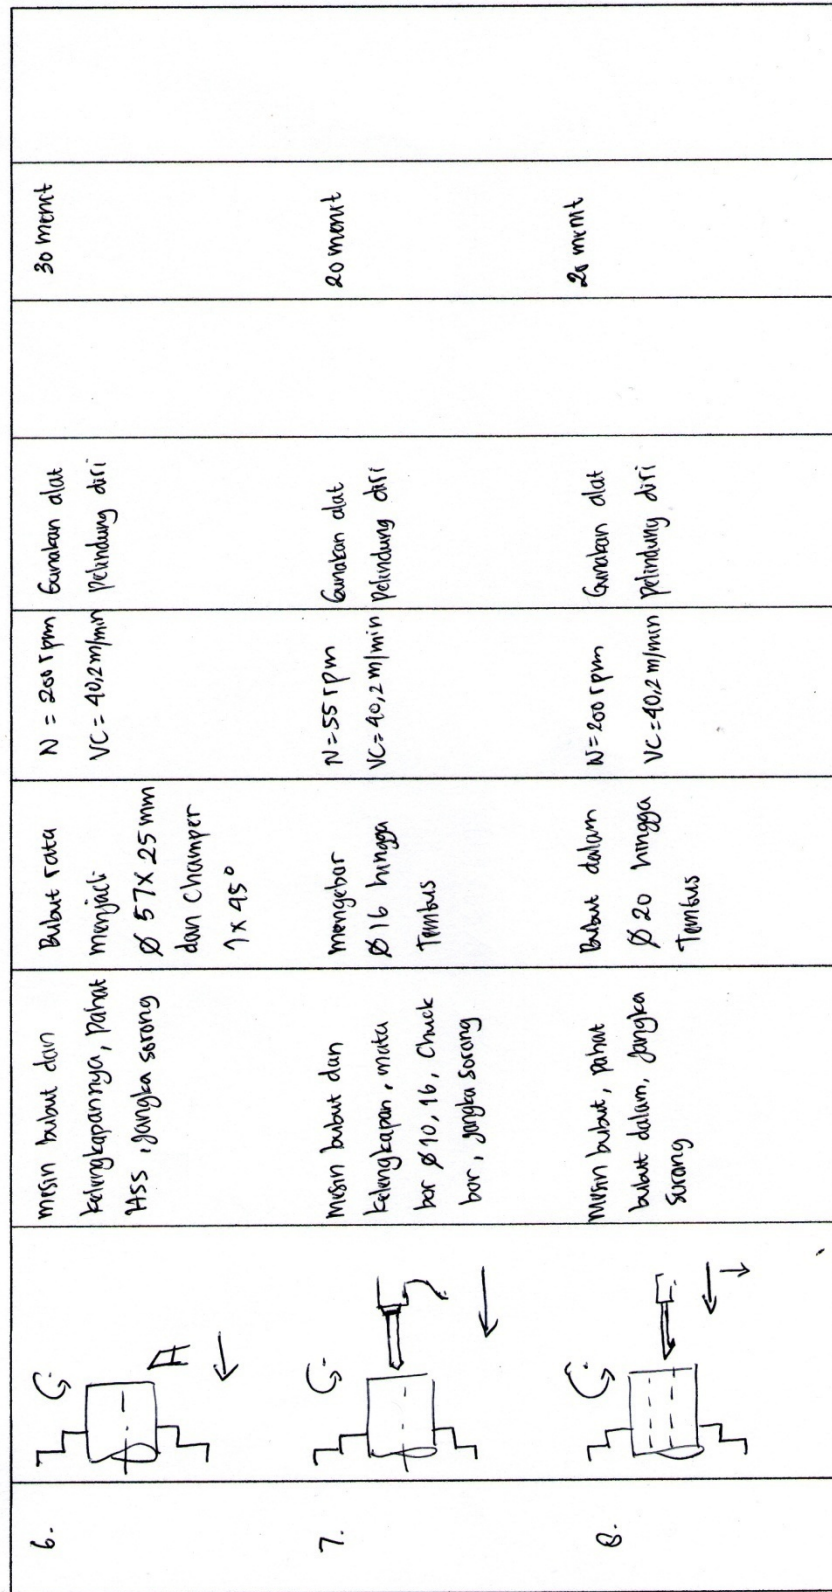 6.
mesin bubut dan
kelengkapannya, pahat
HSS, jangka sorong
Bubut rata
menjadi
Ø 57 x 25 mm
dan Champer
1 x 45°
N = 200 rpm
VC = 40,2 m/min
Gunakan alat
pelindung diri
30 menit
7.
Mesin bubut dan
kelengkapan, mata
bor Ø10, 16, Chuck
bor, jangka sorong
mengebor
Ø 16 hingga
Tembus
N = 55 rpm
VC = 40,2 m/min
Gunakan alat
pelindung diri
20 menit
8.
Mesin bubut, pahat
bubut dalam, jangka
sorong
Bubut dalam
Ø 20 hingga
Tembus
N = 200 rpm
VC = 40,2 m/min
Gunakan alat
pelindung diri
20 menit